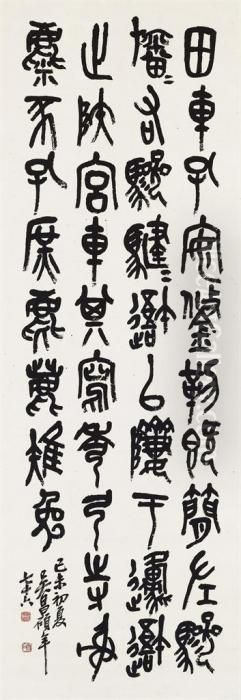 田車孔安鋚勒既簡左驂
旛=右驂騝=避以隮于邍避
止陕宮車其寫秀弓寺射
麋豕孔庶麀鹿雉兔
己未初夏
吳昌碩年
七十六